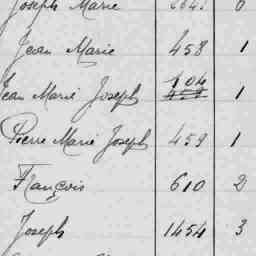 Joseph Marie 0
Jean Marie 458 1
Jean Marié Joseph 404 458 1
Pierre Marié Joseph 459 1
François 610 2
Joseph 1454 3